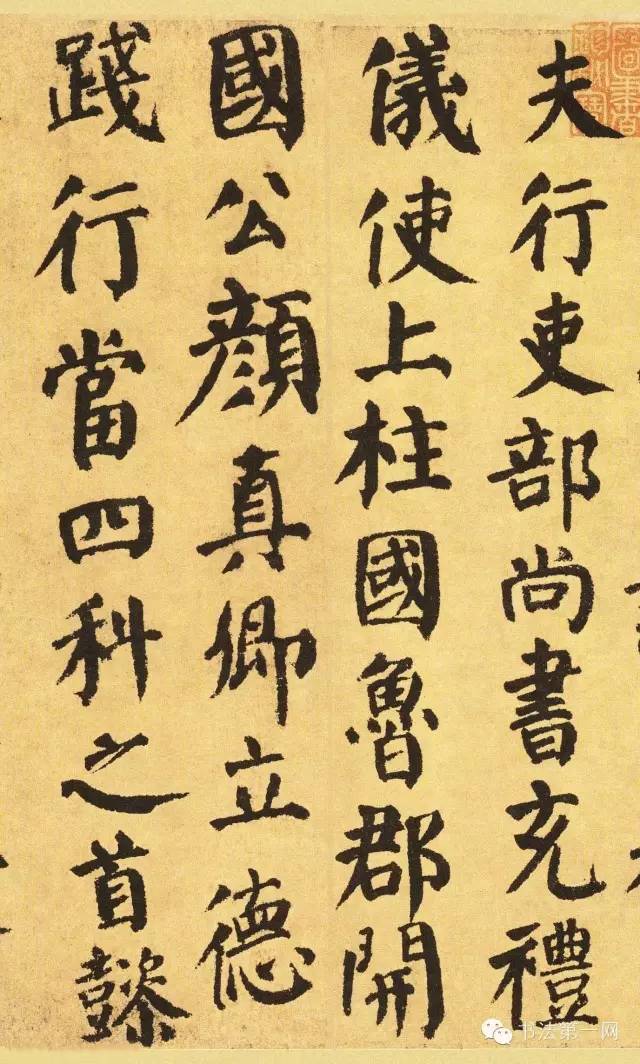 夫行吏部尚書充禮
儀使上柱國魯郡開
國公顏真卿立德
踐行當四科之首懿
书法第一网